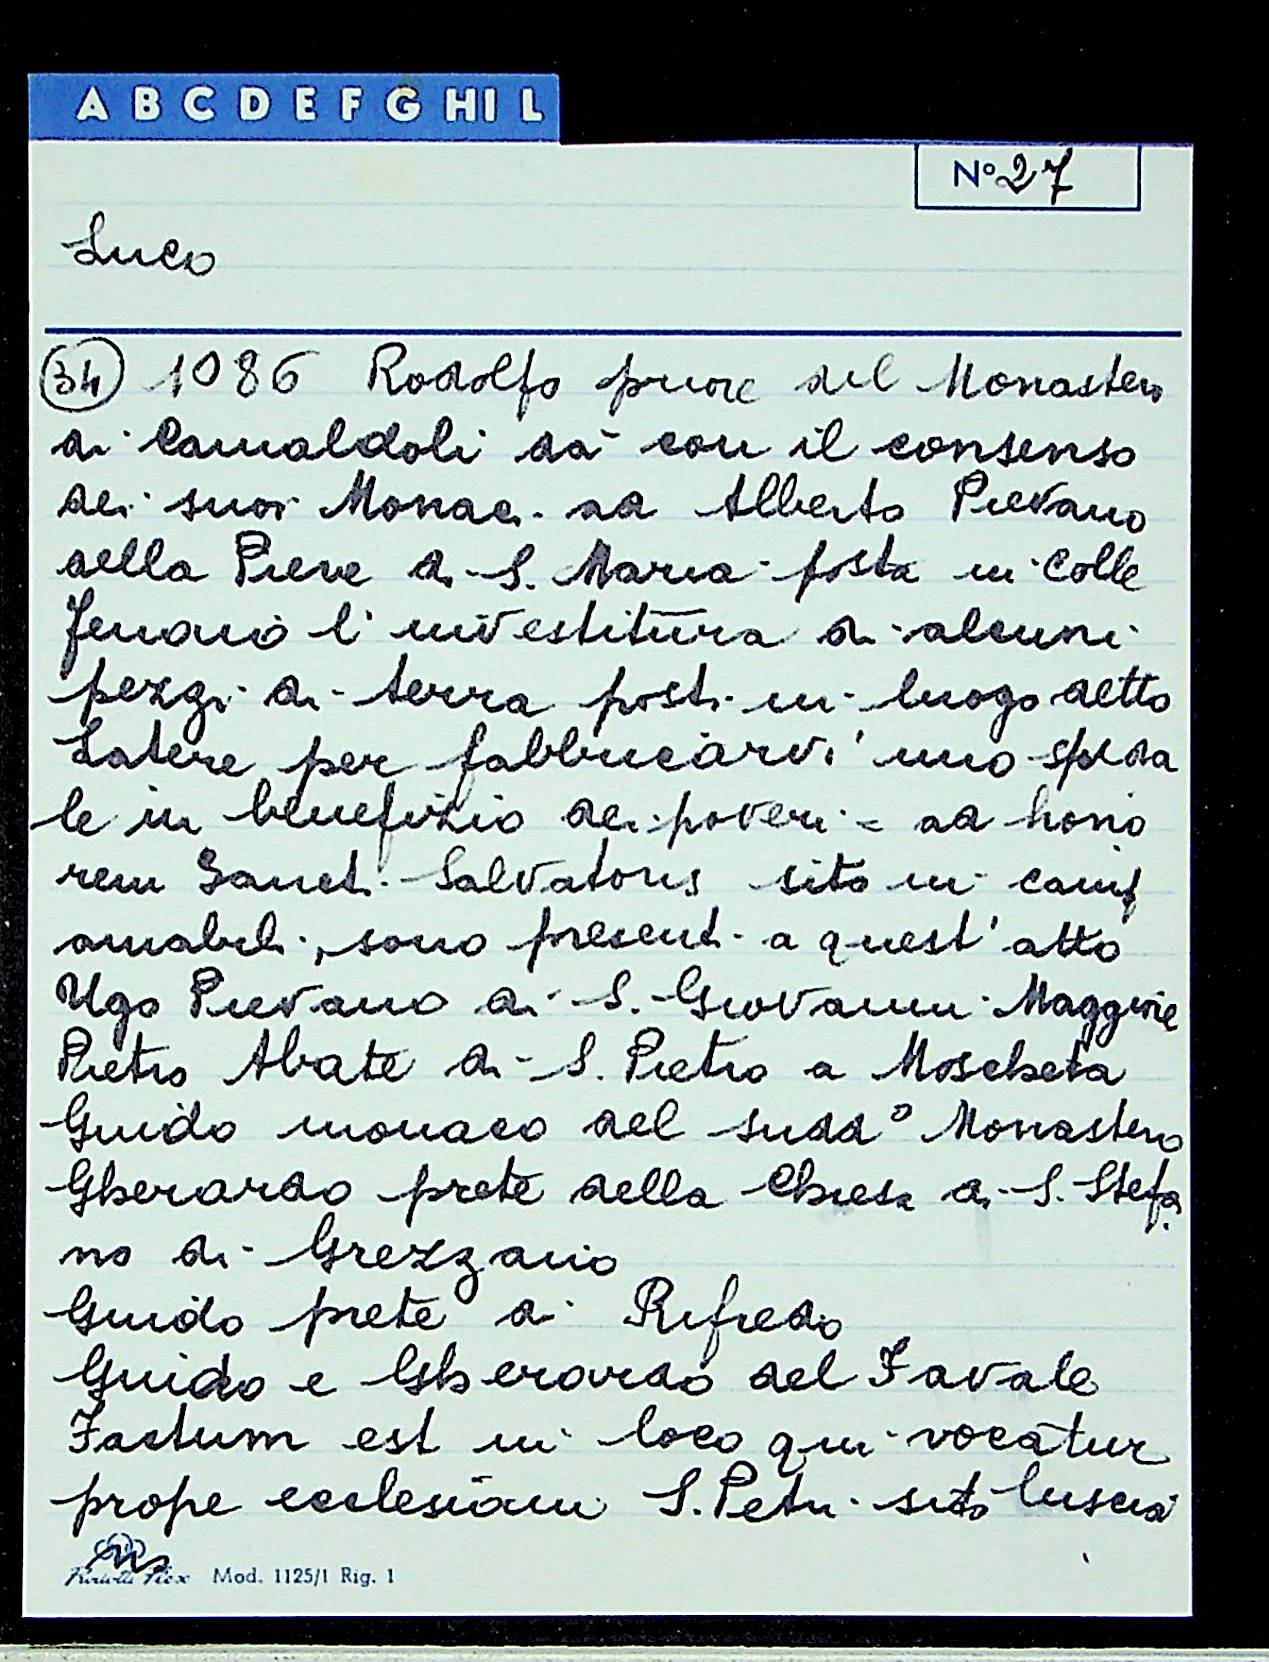 A B C D E F G HI L
Nº 27
Luco
34 1086 Rodolfo priore del Monastero
di Camaldoli dà con il consenso
dei suoi Monaci ad Alberto Pievano
della Pieve di S. Maria posta in Colle
l'investitura di alcuni
pezzi di terra posti in luogo detto
Latere per fabbricarvi uno speda
le in benefizio dei poveri = ad hono
rem Sancti Salvatoris sito in
amabili, sono presenti a quest'atto
Ugo Pievano di S. Giovanni Maggiore
Pietro Abate di S. Pietro a Moscheta
Guido monaco del suddº Monastero
Gherardo prete della Chiesa di S. Stefa
no di Grezzano
Guido prete di Rifredo
Guido e Gherardo del Favale
Factum est in loco qui vocatur
prope ecclesiam S. Petri sito
Mod. 1125/1 Rig. 1